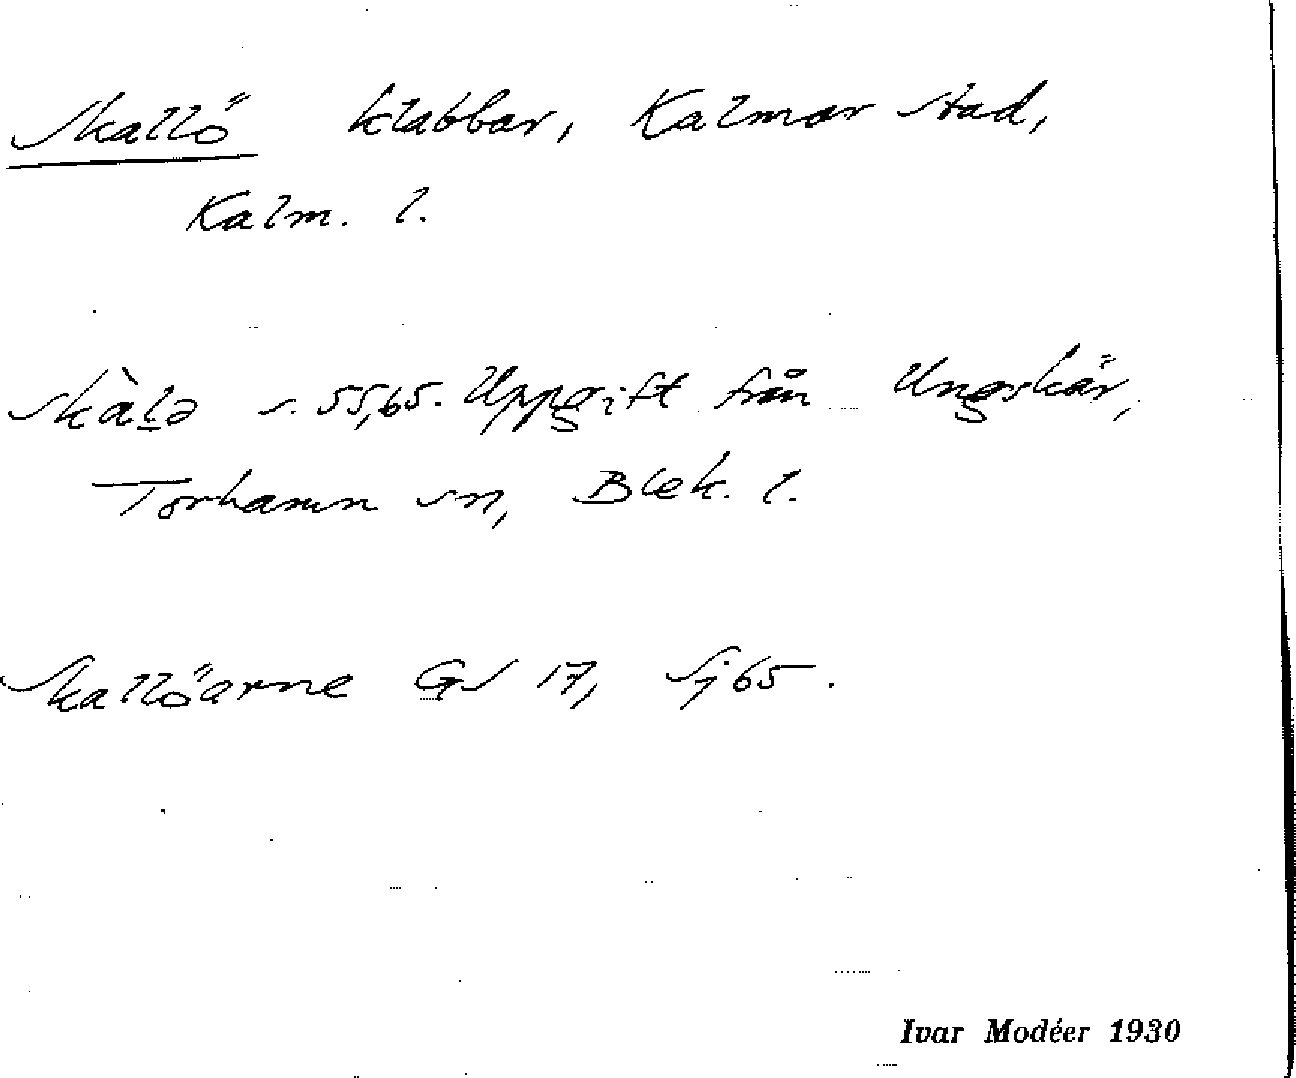 Skallö klabbar, Kalmar stad,
Kalm. l.
skàlə s. 55,65. Uppgift från Ungskär,
Torhamn sn, Blek. l.
Skallöarne GS 17, Sj 65.
Ivar Modéer 1930